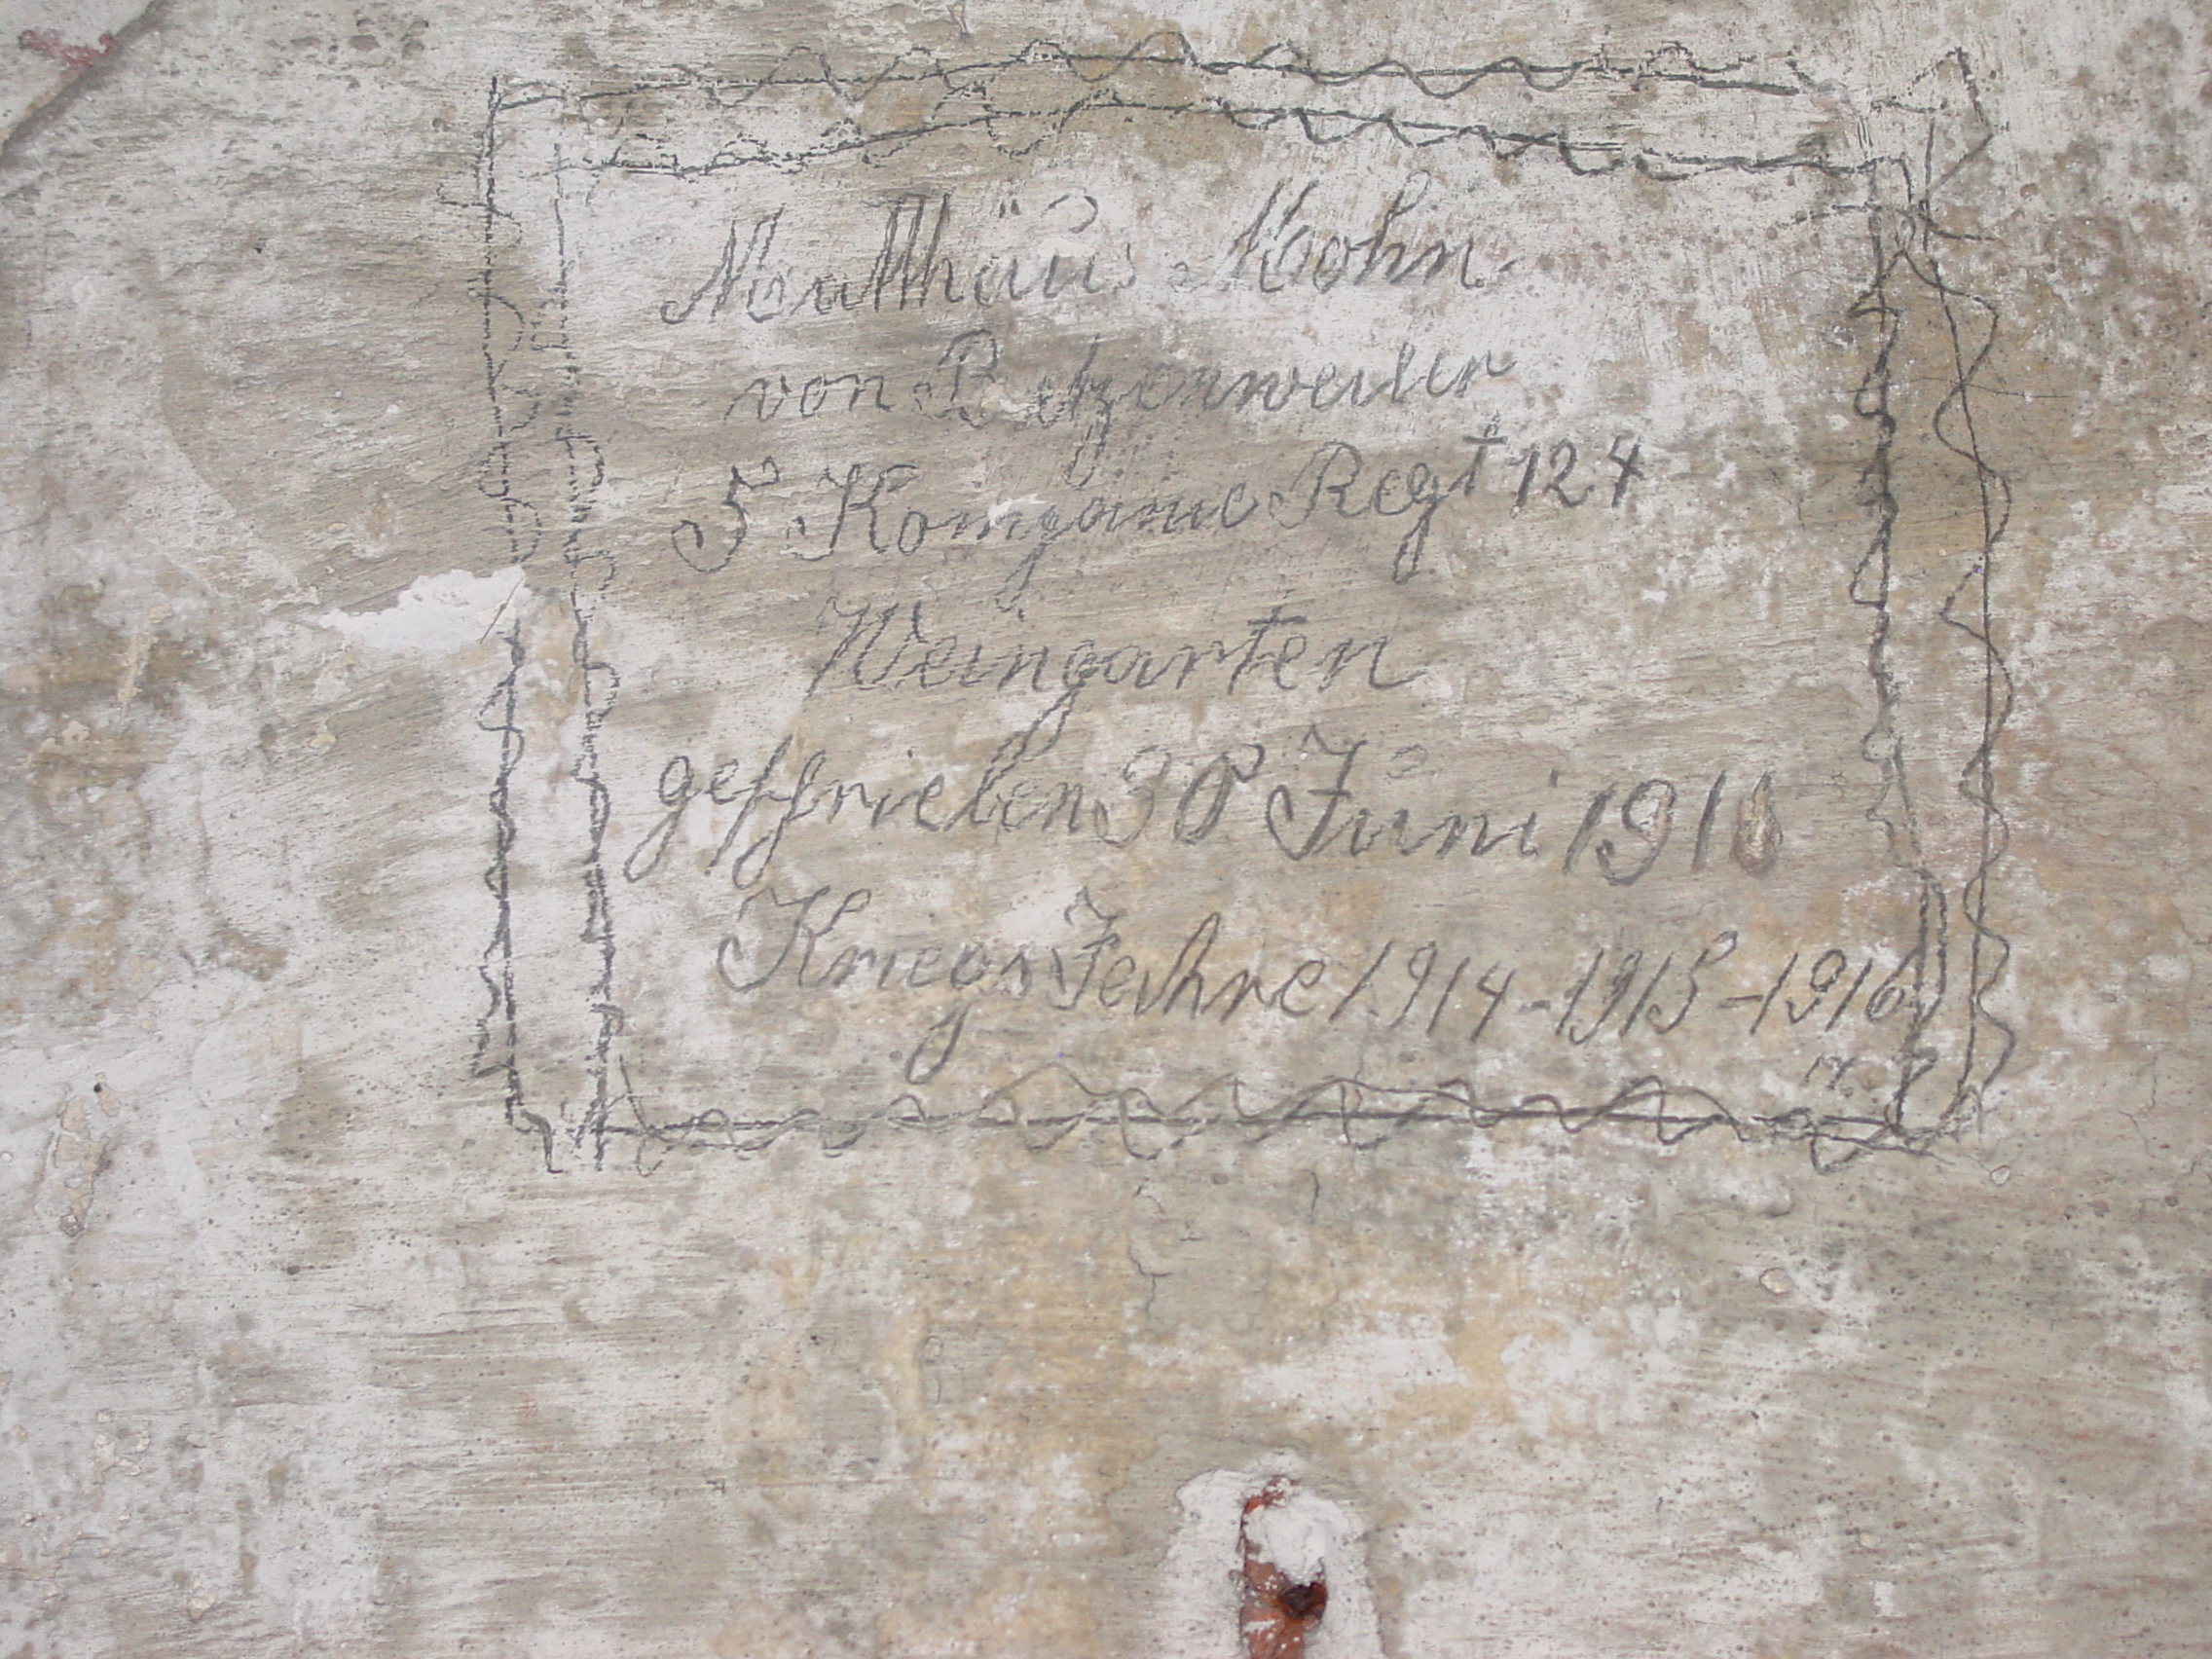 Matthäus Mohn
von Betzenweiler
5 Kompanie Regt 124
Weingarten
geschrieben 30 Juni 1916
Kriegs Jahre 1914-1915-1916